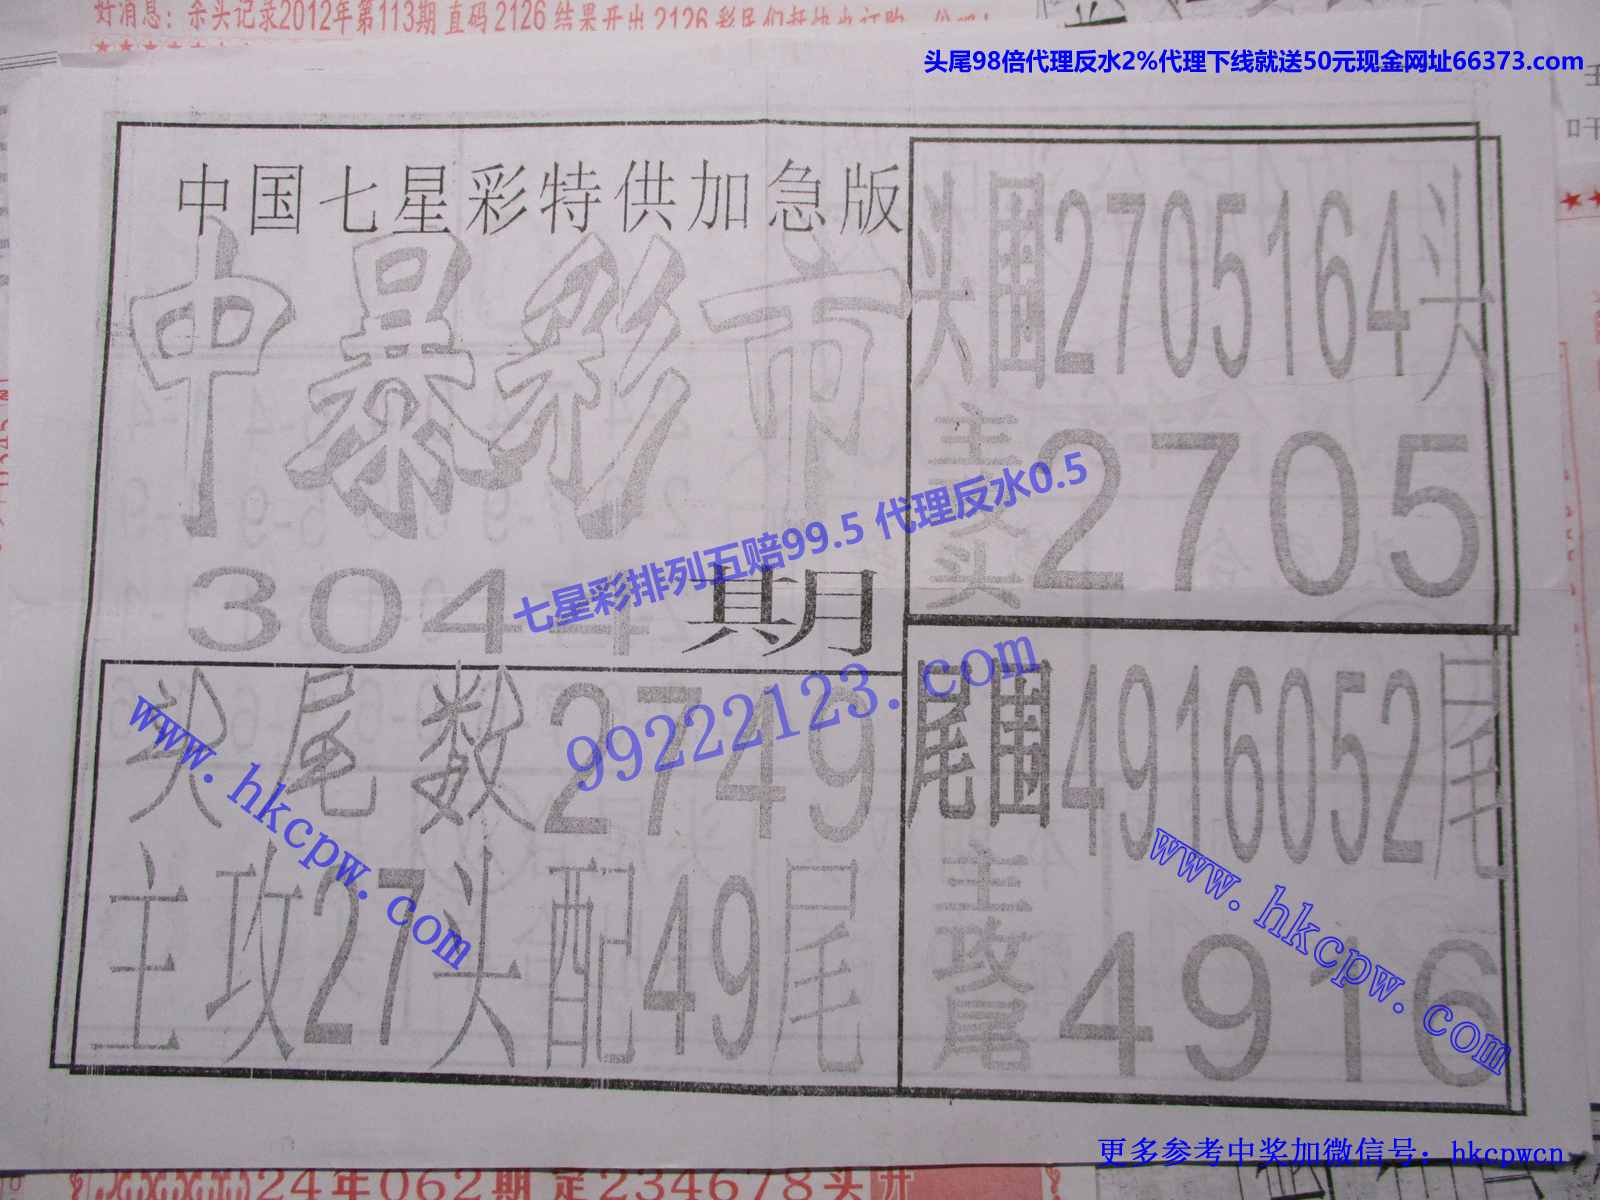 好消息：杀头记录2012年第113期直码2126结果开出2126彩民们赶快
头尾98倍代理反水2%代理下线就送50元现金网址66373.com
中国七星彩特供加急版
中暴彩市
304 期
七星彩排列五赔99.5 代理反水0.5
99222123.com
头围2705164头
主攻头 2705
头尾数2749
主攻27头配49尾
尾围4916052尾
主攻尾 4916
www.hkcpw.com
www.hkcpw.com
更多参考中奖加微信号：hkcpwcn
24年062期定234678头开